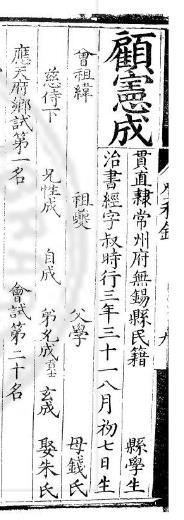 顧憲成
貫直隸常州府無錫縣民籍 縣學生
治書經字叔時行三年三十一八月初七日生
曾祖緯 祖夔 父學 母錢氏
慈侍下 兄性成 自成 弟允成 玄成 娶朱氏
應天府鄉試第一名 會試第二十名